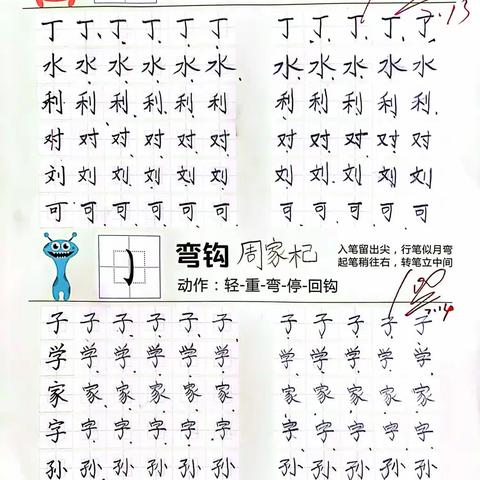 7.13
丁丁丁丁丁丁 丁丁丁丁丁
水水水水水水 水水水水水
利利利利利利 利利利利利
对对对对对对 对对对对对
刘刘刘刘刘刘 刘刘刘刘刘
可可可可可可 可可可可可
弯钩 周家杞 入笔留出尖，行笔似月弯
起笔稍往右，转笔立中间
动作：轻-重-弯-停-回钩
100
7.14
子子子子子子 子子子子子
学学学学学学 学学学学学
家家家家家家 家家家家家
字字字字字字 字字字字字
孙孙孙孙孙孙 孙孙孙孙孙